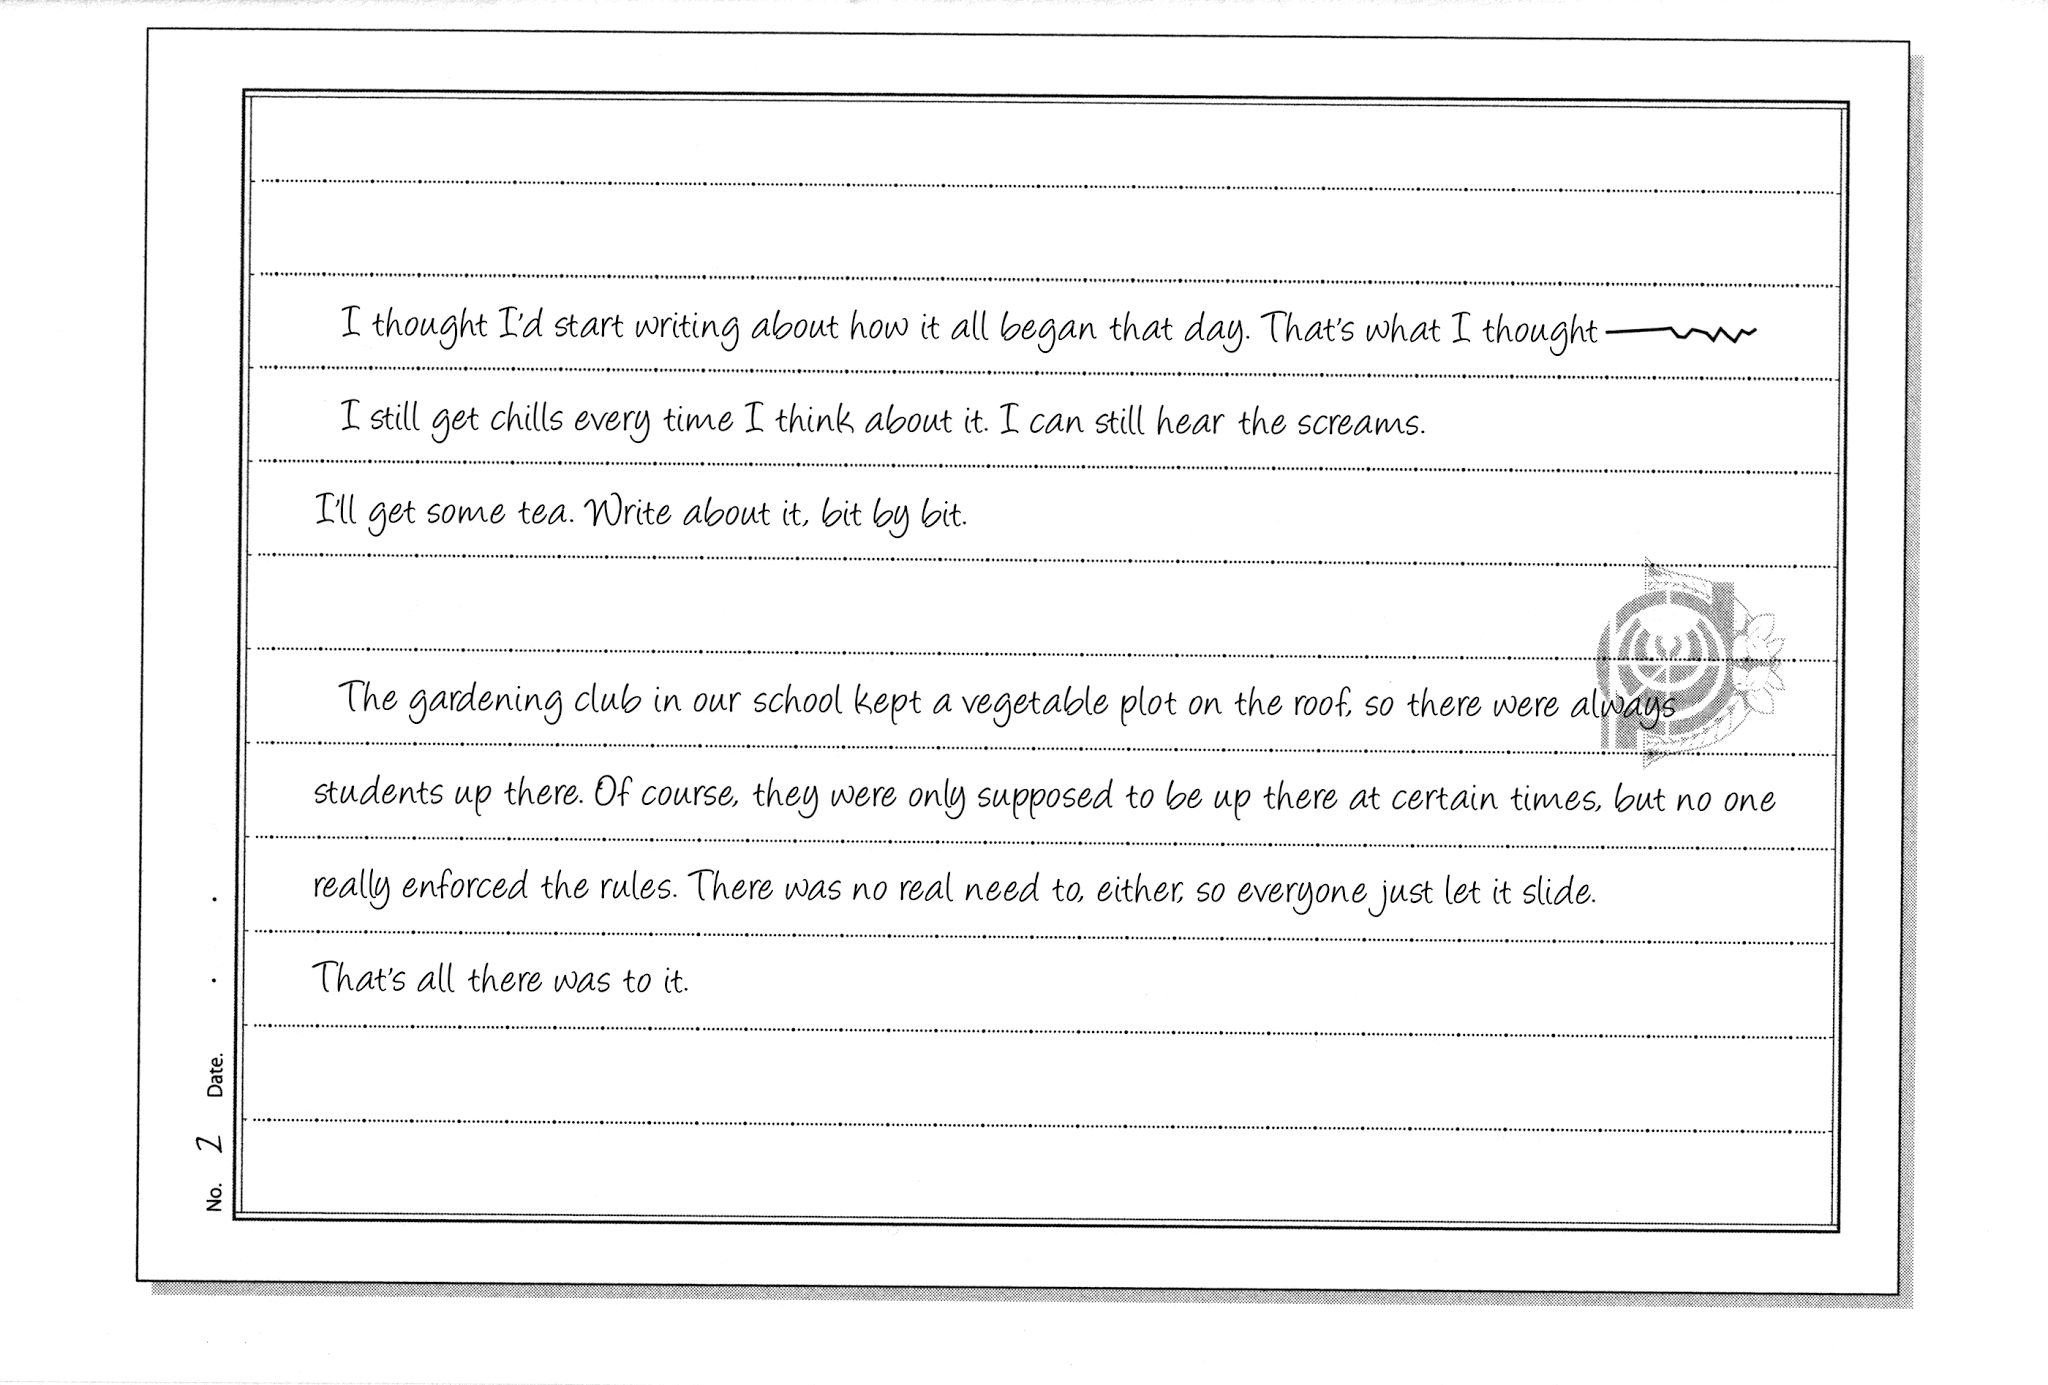 I thought I'd start writing about how it all began that day. That's what I thought
I still get chills every time I think about it. I can still hear the screams.
I'll get some tea. Write about it, bit by bit.
The gardening club in our school kept a vegetable plot on the roof, so there were always
students up there. Of course, they were only supposed to be up there at certain times, but no one
really enforced the rules. There was no real need to, either, so everyone just let it slide.
That's all there was to it.
No. 2 Date. . .